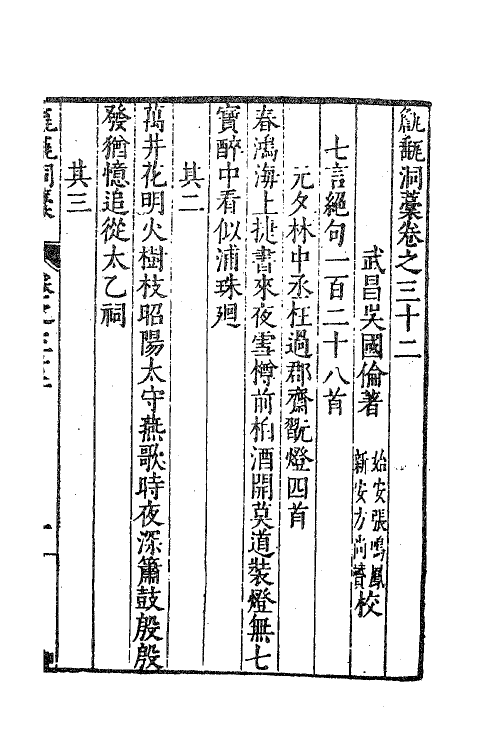 甔甀洞藁卷之三十二
武昌吳國倫著 始安張鳴鳳 新安方尚贇校
七言絕句一百二十八首
元夕林中丞枉過郡齋翫燈四首
春鴻海上捷書來夜雪樽前柏酒開莫道裝燈無七
寶醉中看似浦珠廻
其二
萬井花明火樹枝昭陽太守燕歌時夜深簫鼓殷殷
發猶憶追從太乙祠
其三
甔甀洞藁 卷之三十二 一